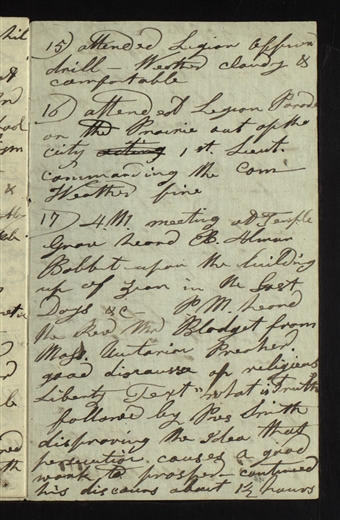 15) attended Legion Officers
drill - Weather cloudy &
comfortable
16) attended Legion Parade
on the Prairie out of the
city acting 1st Lieut.
commanding the Com
Weather fine
17) A.M. meeting at Temple
Grove heard E. Alman
Babbet upon the building
up of Zion in the Last
Days &c P.M heard
the Rev Mr Blodget from
Mass. Unitarian Preacher
good discourse on religious
Liberty Text "what is Truth"
followed by Pres Smith
disproving the idea that
persecution causes a good
work to prosper - continued
his discours about 1½ hours
&